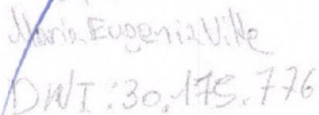 Maria Eugenia Ville
DNI: 30.175.776